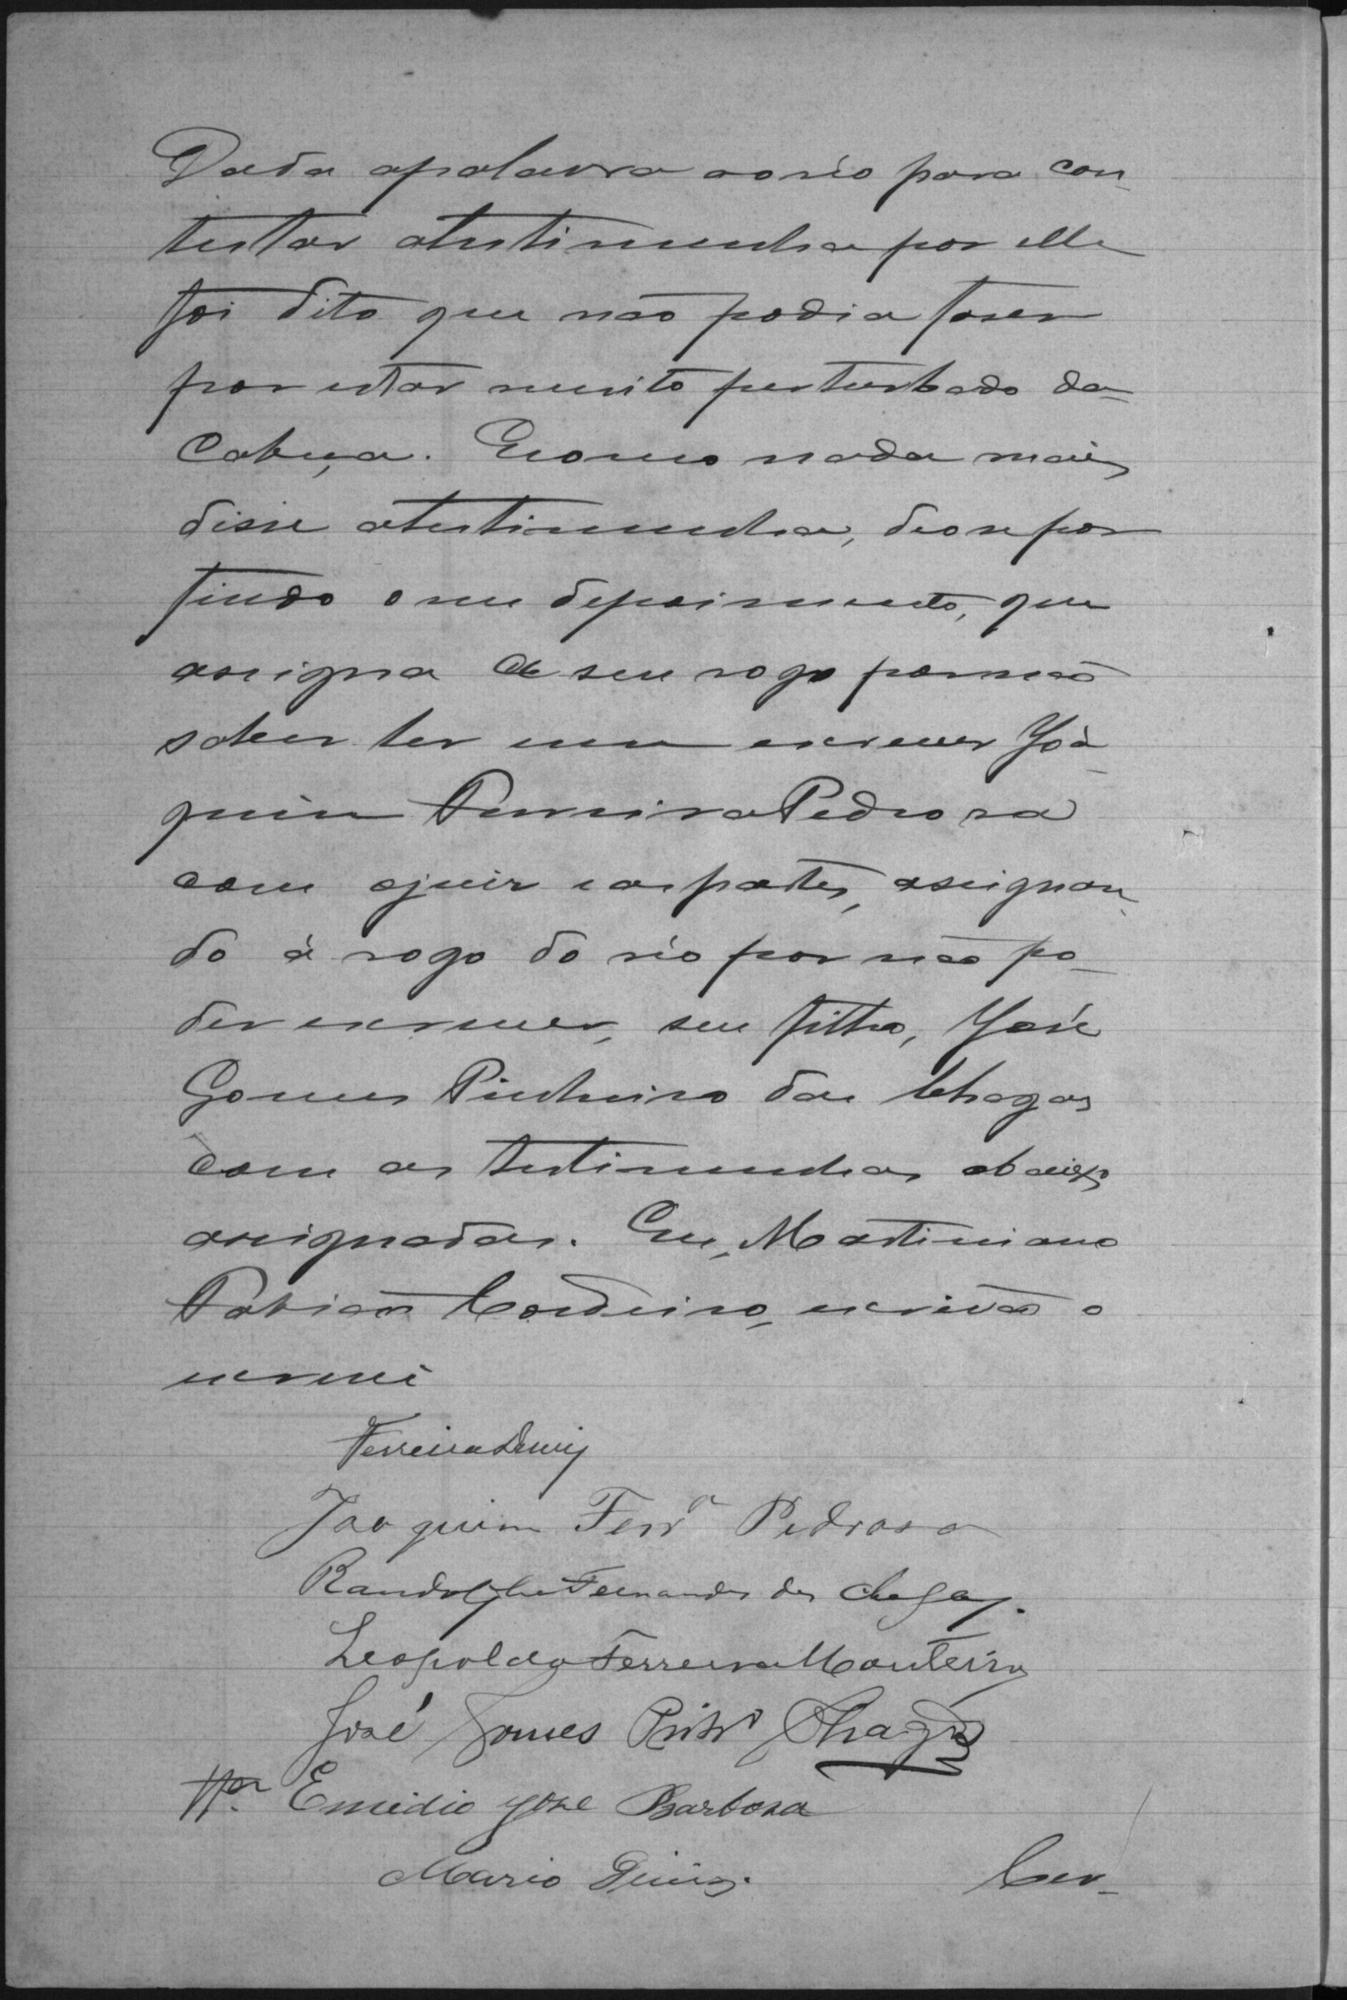 Dada apalavra ao réo para con-
testar atestimunha por elle
foi dito que não podia faser
por estar muito perturbado da-
Cabeça. E como nada mais
disse atestimunha, deose por
findo o seu depoimento, que
assigna a seu rogo por não
saber ler nem escrever Joa-
quim Ferreira Pedrosa
com ojuiz e as partes, assignan-
do á rogo do réo por não po-
der escrever, seu filho, José
Gomes Pinheiro das Chagas
com as testimunhas abaixo
assignadas. Eu, Martiniano
Fabião Cordeiro, escrivão o
escrevi
Ferreira Diniz
Joaquim Ferrª Pedrosa
Randolpho Fernandes das Chagas.
Leopoldo Ferreira Monteiro
José Gomes Pinhrº Chagas
Emidio José Barbosa
Mario Diniz.
Cer-